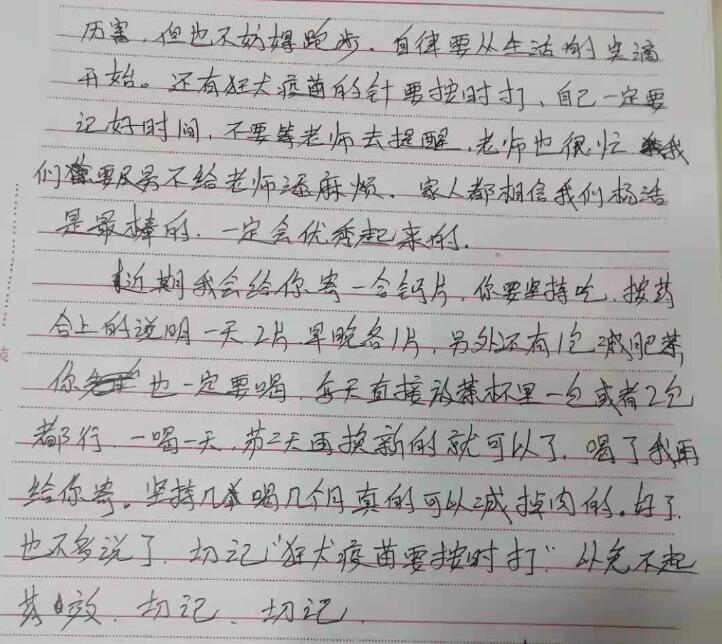 厉害，但也不妨碍跑步，自律要从生活的点滴
开始。还有狂犬疫苗的针要按时打，自己一定要
记好时间，不要等老师去提醒，老师也很忙 我
们要尽量不给老师添麻烦，家人都相信我们杨浩
是最棒的，一定会优秀起来的，
近期我会给你寄一合钙片，你要坚持吃，按药
合上的说明一天2片，早晚各1片，另外还有1包减肥茶，
你也一定要喝，每天直接放茶杯里一包或者2包
都行，一喝一天，苐二天再换新的就可以了，喝了我再
给你寄。坚持喝几个月真的可以减掉肉的。好了，
也不多说了，切记"狂犬疫苗要按时打"以免不起
效，切记、切记，